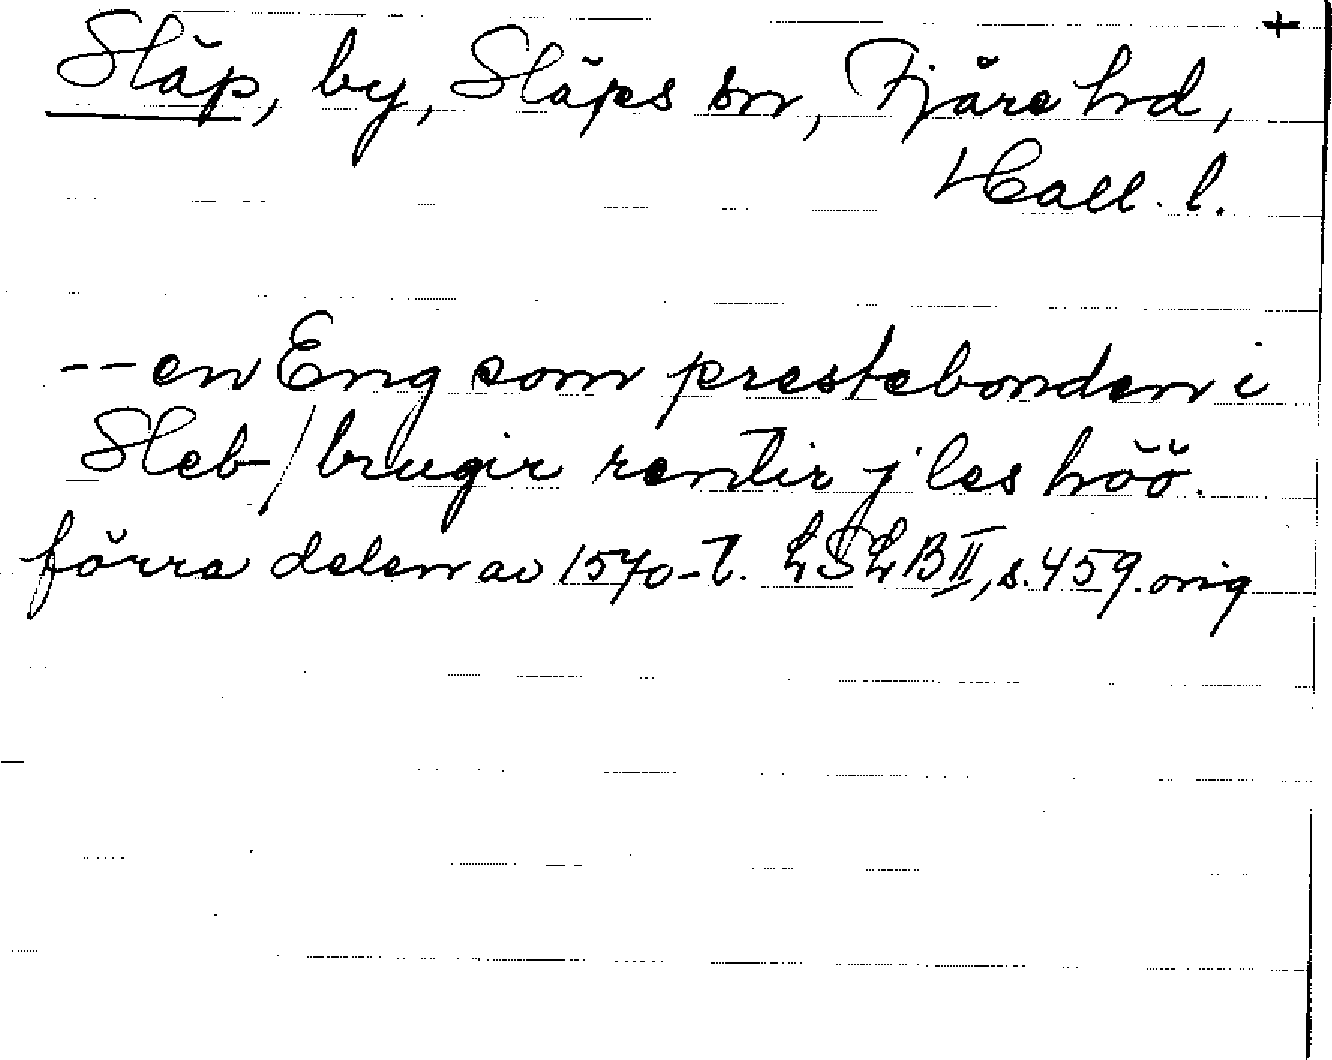 +
Släp, by, Släps sn, Fjäre hd,
Hall. l.
-- en Eng som prestebonden i
Sleb / brugir rentir j les höö.
förra delen av 1570-t. LSLB II, s. 459. orig